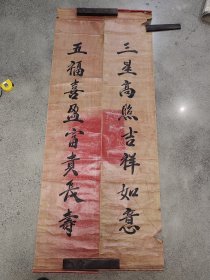 三星高照吉祥如意
五福喜盈富貴长壽